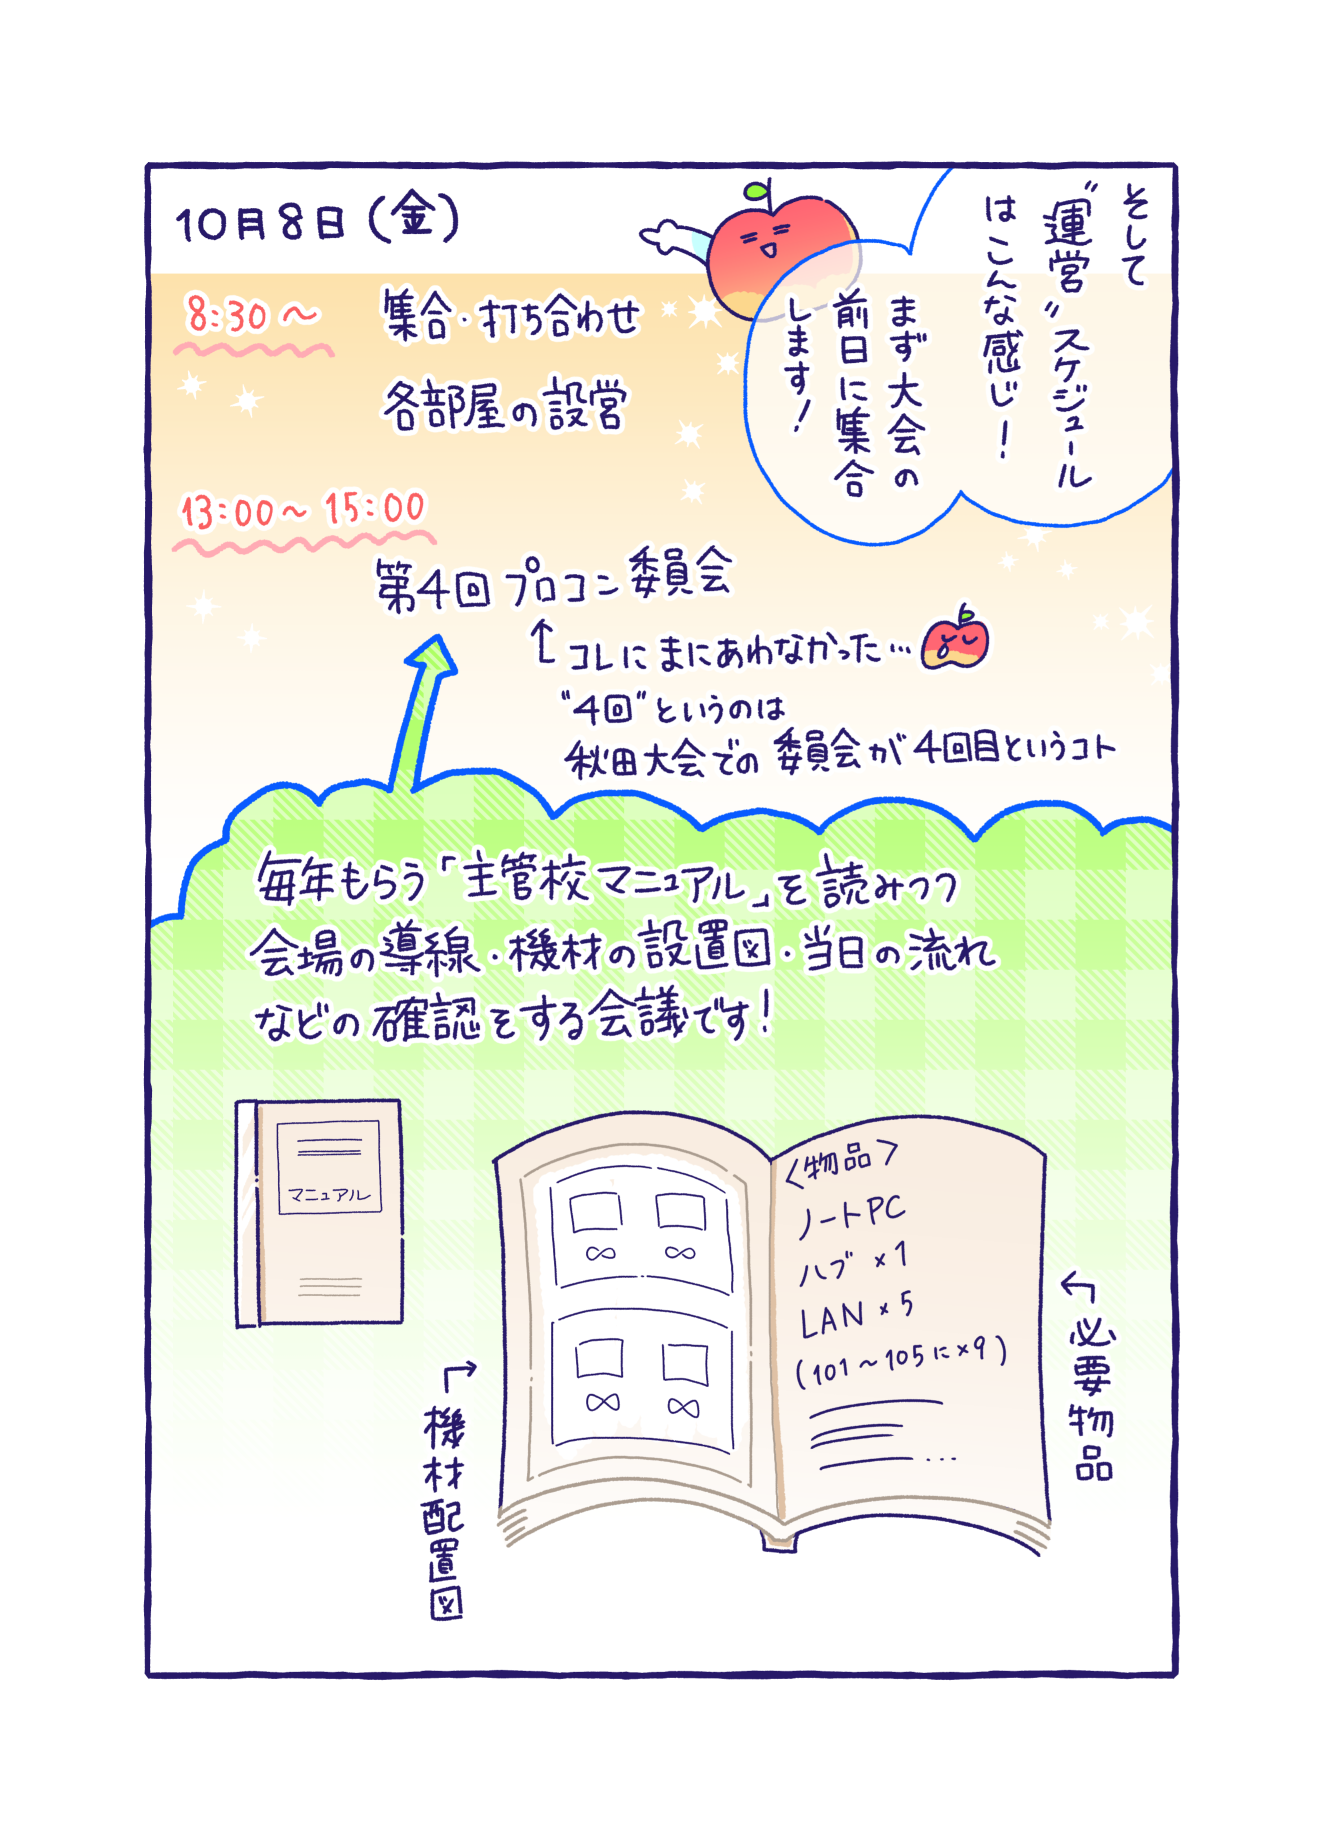 そして
“運営”スケジュール
はこんな感じ！
まず大会の
前日に集合
します！
10月8日（金）
8:30〜
集合・打ち合わせ
各部屋の設営
13:00〜15:00
第4回プロコン委員会
↑コレにまにあわなかった…
“4回”というのは
秋田大会での委員会が4回目というコト
毎年もらう「主管校マニュアル」を読みつつ
会場の導線・機材の設置図・当日の流れ
などの確認をする会議です！
マニュアル
<物品>
ノートPC
ハブ×1
LAN×5
(101〜105に×9)
...
←必要物品
→機材配置図